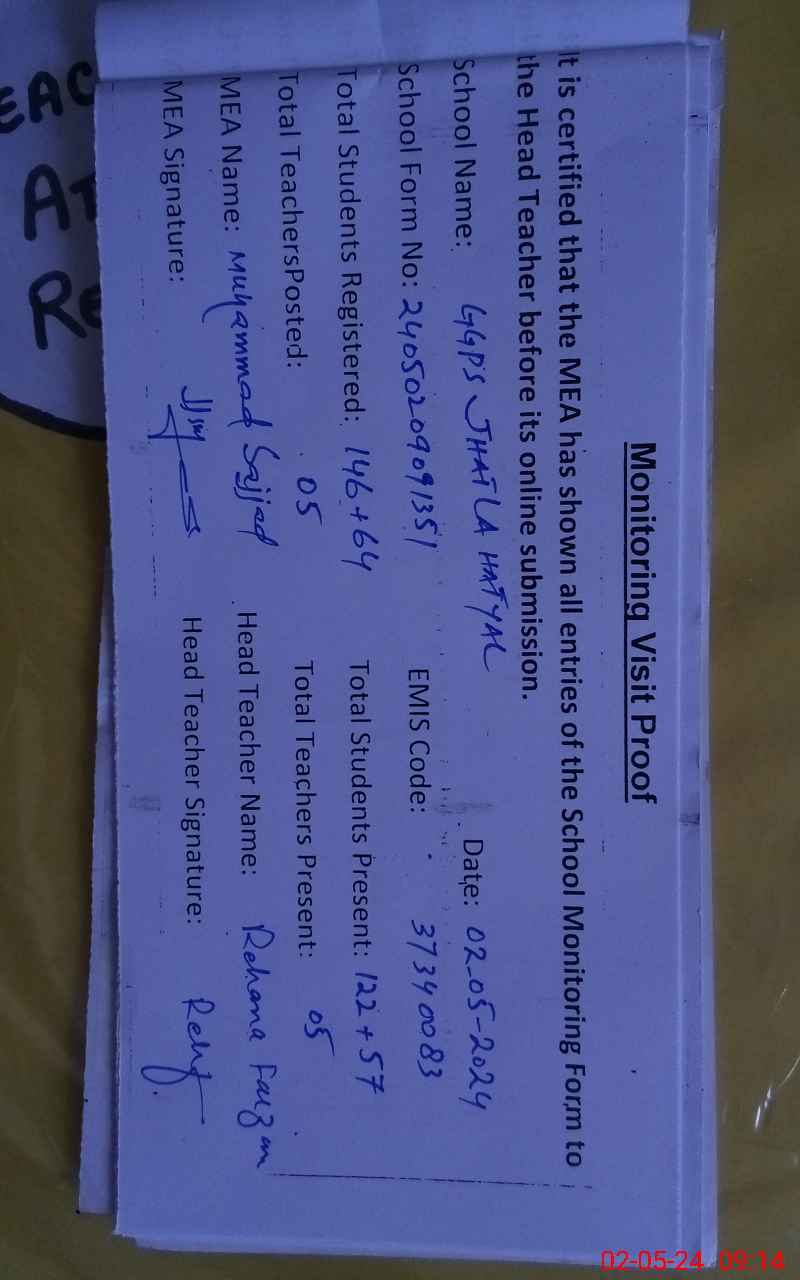 Monitoring Visit Proof
It is certified that the MEA has shown all entries of the School Monitoring Form to
the Head Teacher before its online submission.
School Name: GGPS JHATLA HATYAL Date: 02-05-2024
School Form No: 24050209091351 EMIS Code: 37340083
Total Students Registered: 146+64 Total Students Present: 122+57
Total TeachersPosted: 05 Total Teachers Present: 05
MEA Name: Muhammad Sajjad Head Teacher Name: Rehana
MEA Signature: Head Teacher Signature:
EAC
A
R
02-05-24 09:14